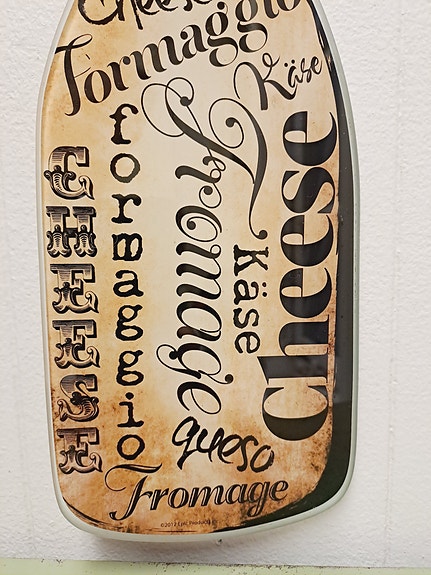 Cheese
Formaggio
Käse
formaggio
Fromage
CHEESE
Cheese
Käse
queso
Fromage
©2012